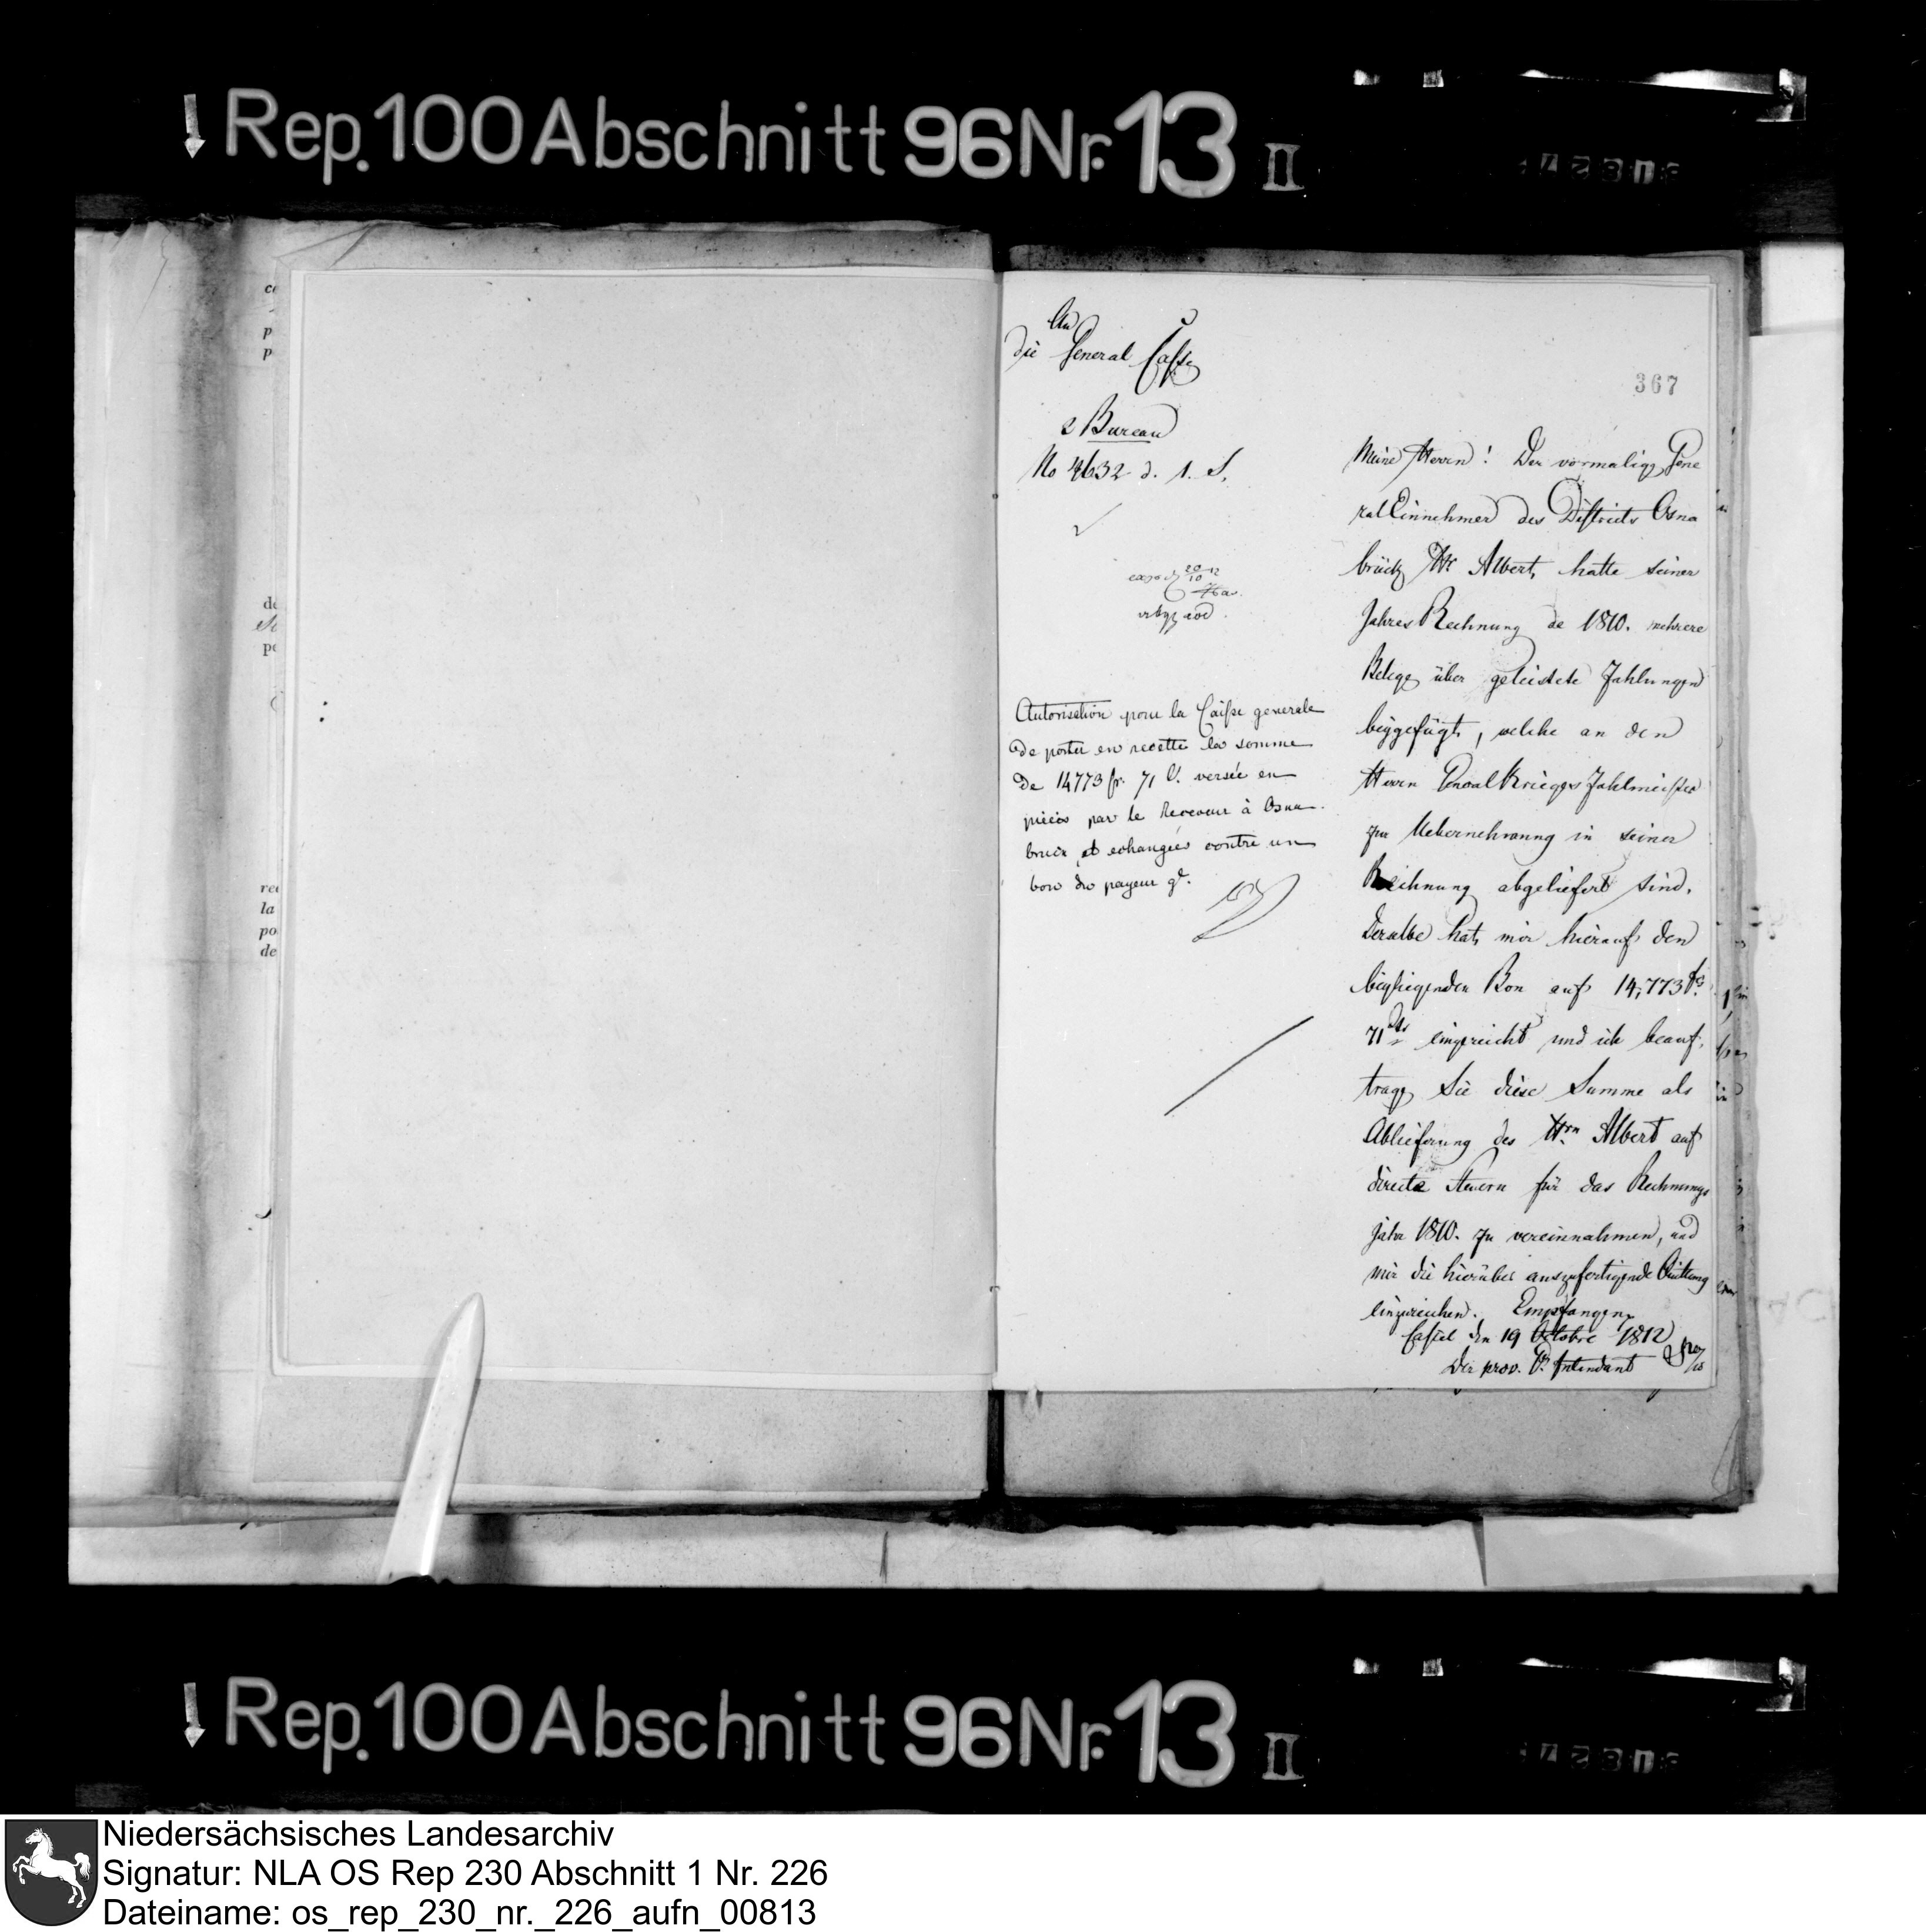 Rep. 100 Abschnitt 96 Nr. 13 II
An
die General Casse
2 Bureau
No 4632 d. 1. S.
20/10 12
Autorisation pour la Caisse generale
de porter en recette la somme
de 14773 fr. 71 C. versée en
pièces par le Receveur à Osna-
bruck et echangées contre un
bon du payeur gl.
367
Meine Herren! Der vormalige Gene
ral Einnehmer des Districts Osna
brück Hr Albert, hatte seiner
Jahres Rechnung de 1810. mehrere
Belege über geleistete Zahlungen
beygefügt, welche an den
Herrn General Kriegs Zahlmeister
zur Uebernehmung in seiner
Rechnung abgeliefert sind.
Derselbe hat mir hierauf den
beyliegenden Bon auf 14,773 fs
71 eingereicht und ich beauf,
trage Sie diese Summe als
Ablieferung des Hrn Albert auf
directe Steuern für das Rechnungs
Jahr 1810. zu vereinnahmen, und
mir die hierüber auszufertigende Quittung
einzureichen. Empfangen
Cassel den 19 Octobre 1812
Der prov. Intendant
co
p
p
de
pe
rec
la
po
de
Rep. 100 Abschnitt 96 Nr. 13 II
Niedersächsisches Landesarchiv
Signatur: NLA OS Rep 230 Abschnitt 1 Nr. 226
Dateiname: os_rep_230_nr._226_aufn_00813